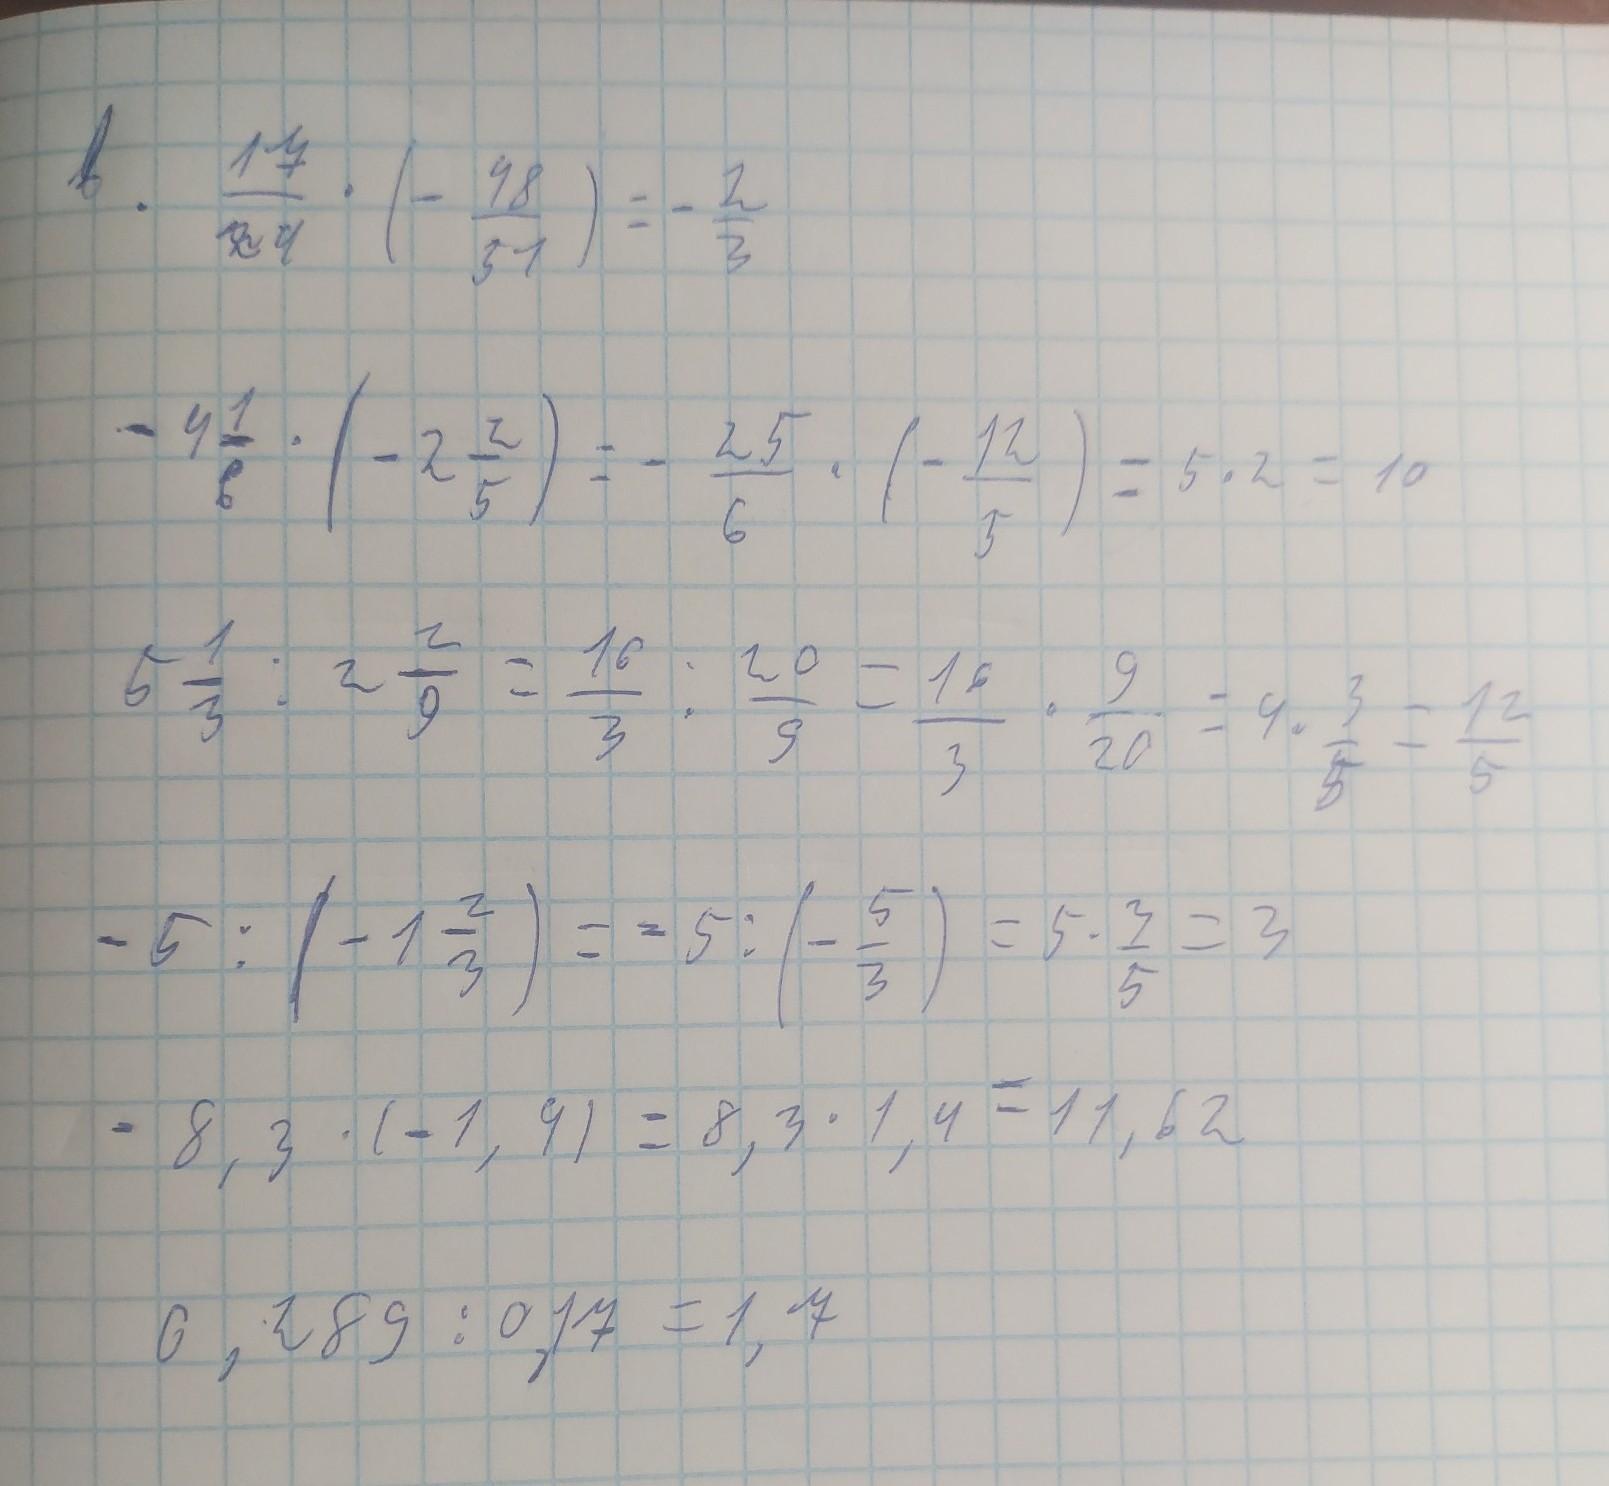 1. 17/24 · (- 48/51) = - 2/3
- 4 1/6 · (- 2 2/5) = - 25/6 · (- 12/5) = 5 · 2 = 10
5 1/3 : 2 2/9 = 16/3 : 20/9 = 16/3 · 9/20 = 4 · 3/5 = 12/5
- 5 : (- 1 2/3) = - 5 : (- 5/3) = 5 · 3/5 = 3
- 8,3 · (- 1,4) = 8,3 · 1,4 = 11,62
0,289 : 0,17 = 1,7